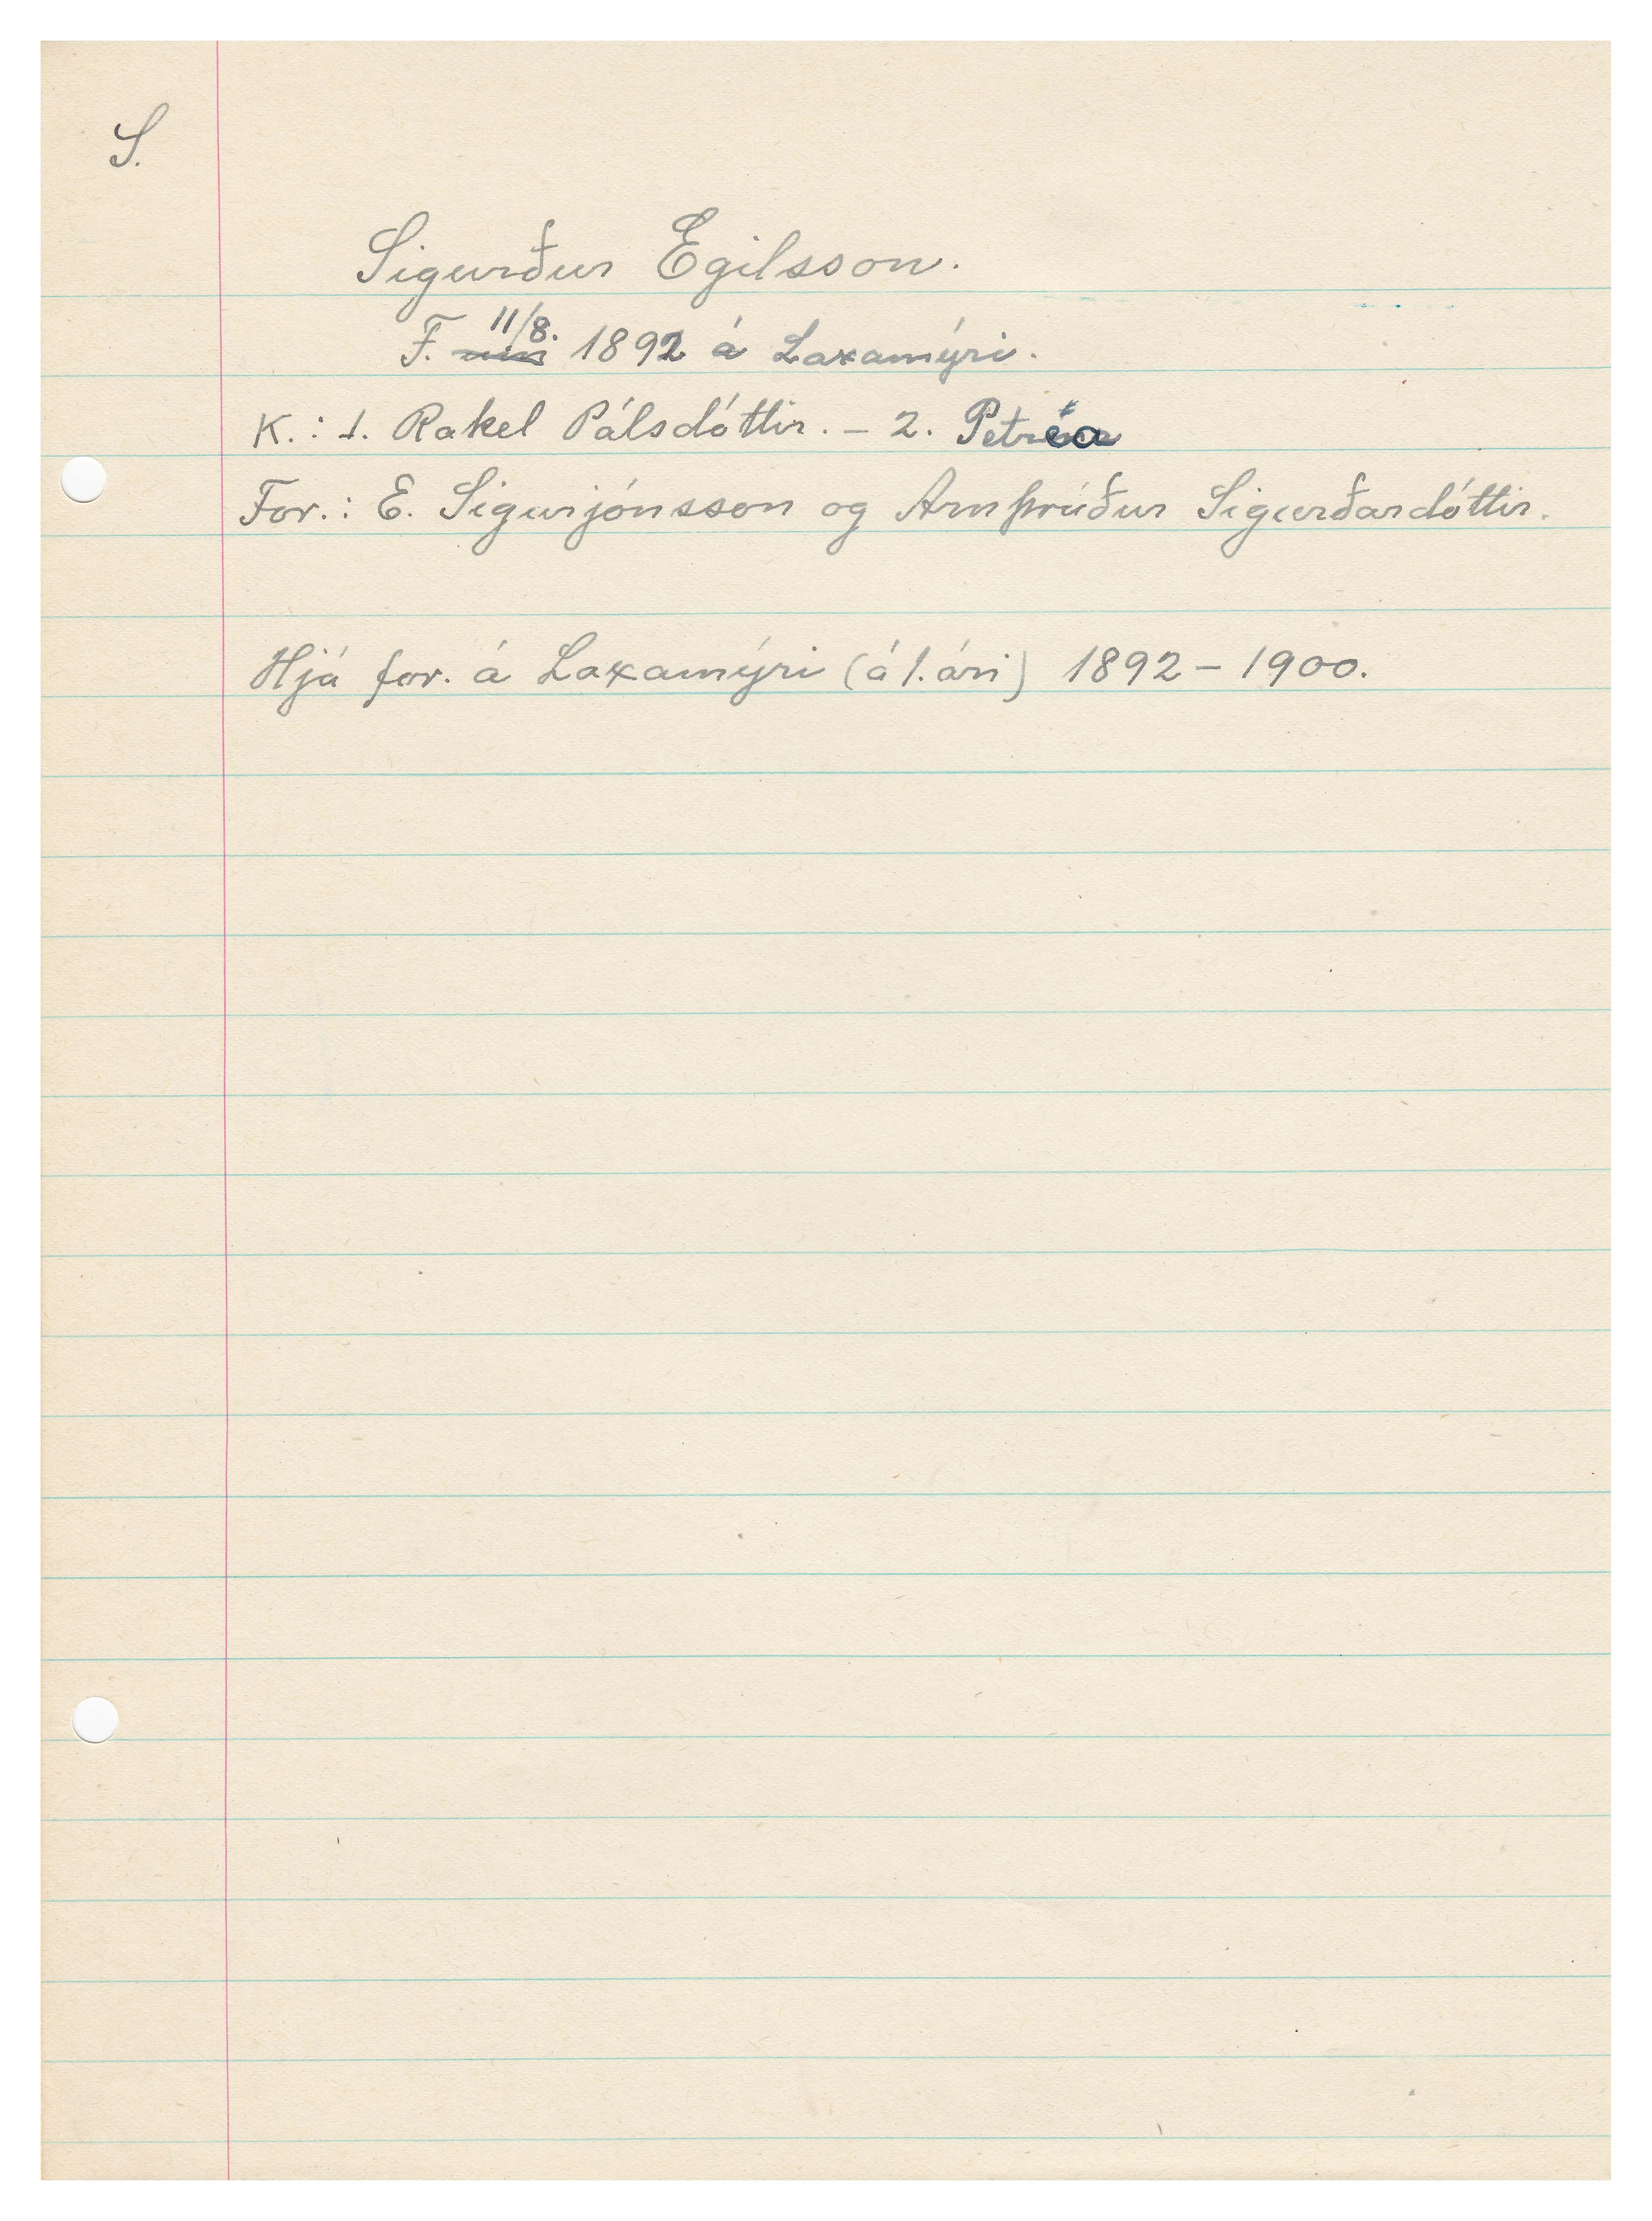 S.
Sigurður Egilsson.
F. 11/8. 1892 á Laxamýri.
K.: 1. Rakel Pálsdóttir. – 2. Petréa
For.: E. Sigurjónsson og Arnþrúður Sigurðardóttir.
Hjá for. á Laxamýri (á 1. ári) 1892 – 1900.